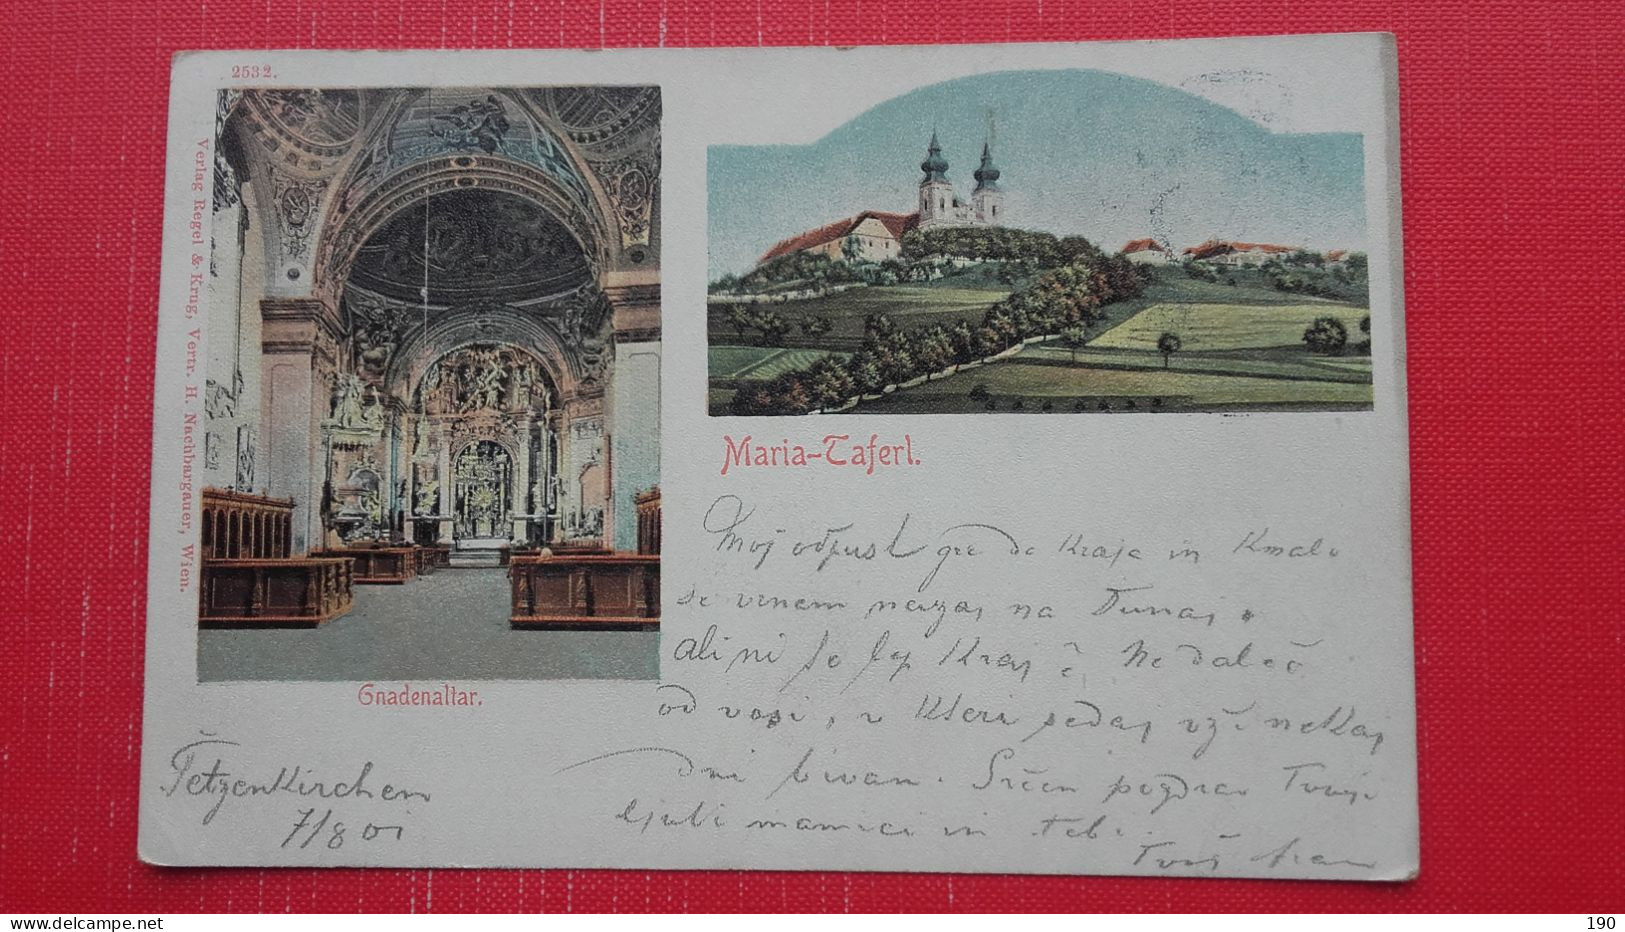 2532.
Verlag Regel & Krug, Vertr. H. Nachbargauer, Wien.
Gnadenaltar.
Maria-Taferl.
Moj odpust gre do kraja in kmalo
se vrnem nazaj na Dunaj.
ali ni to lep kraj? Ne daleč
od vasi, v kteri sedaj uže nekaj
dni bivam. Srčen pozdrav Tvoji
ljubi mamici in tebi.
Tvoj
Petzenkirchen
7/8 01
190